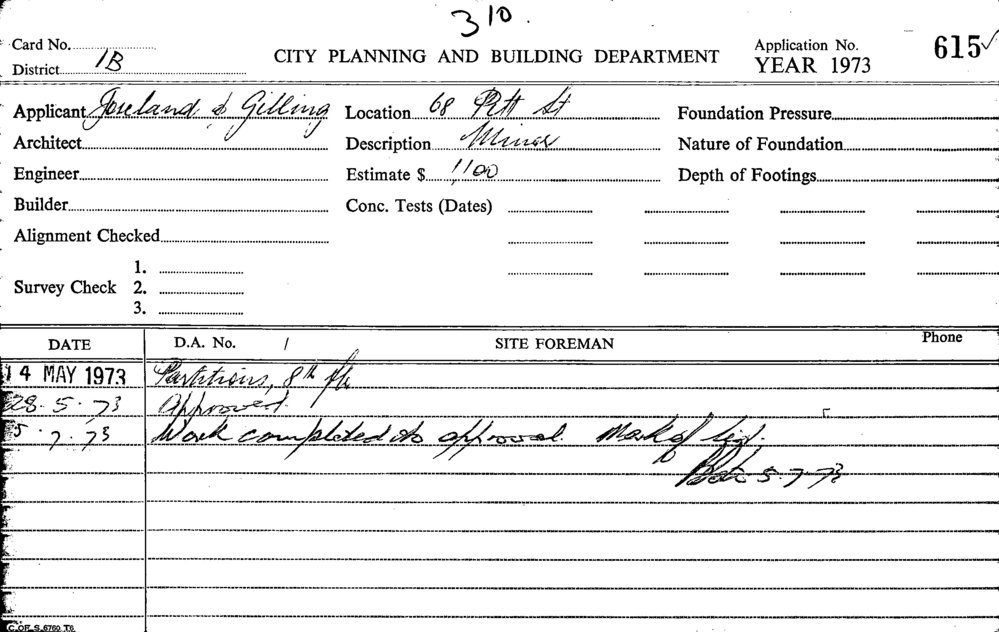 310.
Card No.
District 1B
CITY PLANNING AND BUILDING DEPARTMENT
Application No. 615✓
YEAR 1973
Applicant Joseland & Gilling Location 68 Pitt St Foundation Pressure
Architect Description Minor Nature of Foundation
Engineer Estimate $ 1100 Depth of Footings
Builder Conc. Tests (Dates)
Alignment Checked
Survey Check
1.
2.
3.
DATE D.A. No. / SITE FOREMAN Phone
14 MAY 1973 Partitions, 8th flr
28.5.73 Approved.
5.7.73 Work completed to approval.
5.7.73
C. OF S. 6760 T6